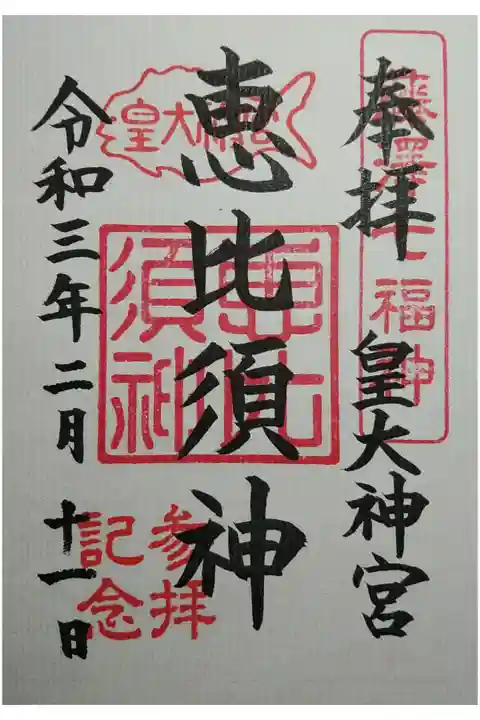 奉拝
皇大神宮
恵比須神
令和三年二月十一日
藤澤七福神
皇大神宮
恵比須神
参拝
記念